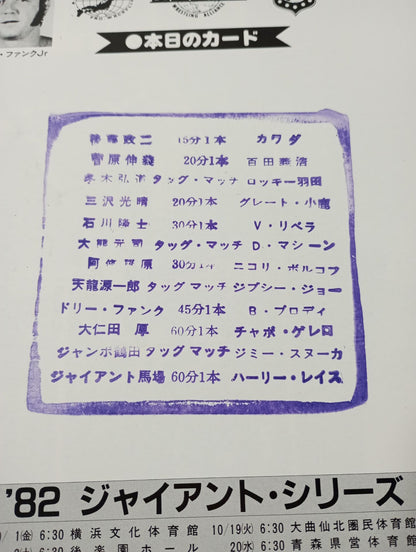 ・ファンクJr
WRESTLING ALLIANCE
●本日のカード
後藤政二 15分1本 カワダ
菅原伸義 20分1本 百田義浩
冬木弘道 タッグ・マッチ ロッキー羽田
三沢光晴 20分1本 グレート・小鹿
石川隆士 30分1本 V・リベラ
大熊元司 タッグ・マッチ D・マシーン
阿修羅原 30分1本 ニコリ・ボルコフ
天龍源一郎 タッグ マッチ ジプシー・ジョー
ドリー・ファンク 45分1本 B・ブロディ
大仁田厚 60分1本 チャボ・ゲレロ
ジャンボ鶴田 タッグ マッチ ジミー・スヌーカ
ジャイアント馬場 60分1本 ハーリー・レイス
'82 ジャイアント・シリーズ
1㈮ 6:30 横浜文化体育館 10/19㈫ 6:30 大曲仙北圏民体育館
2㈯ 6:30 後楽園ホール 20㈬ 6:30 青森県営体育館